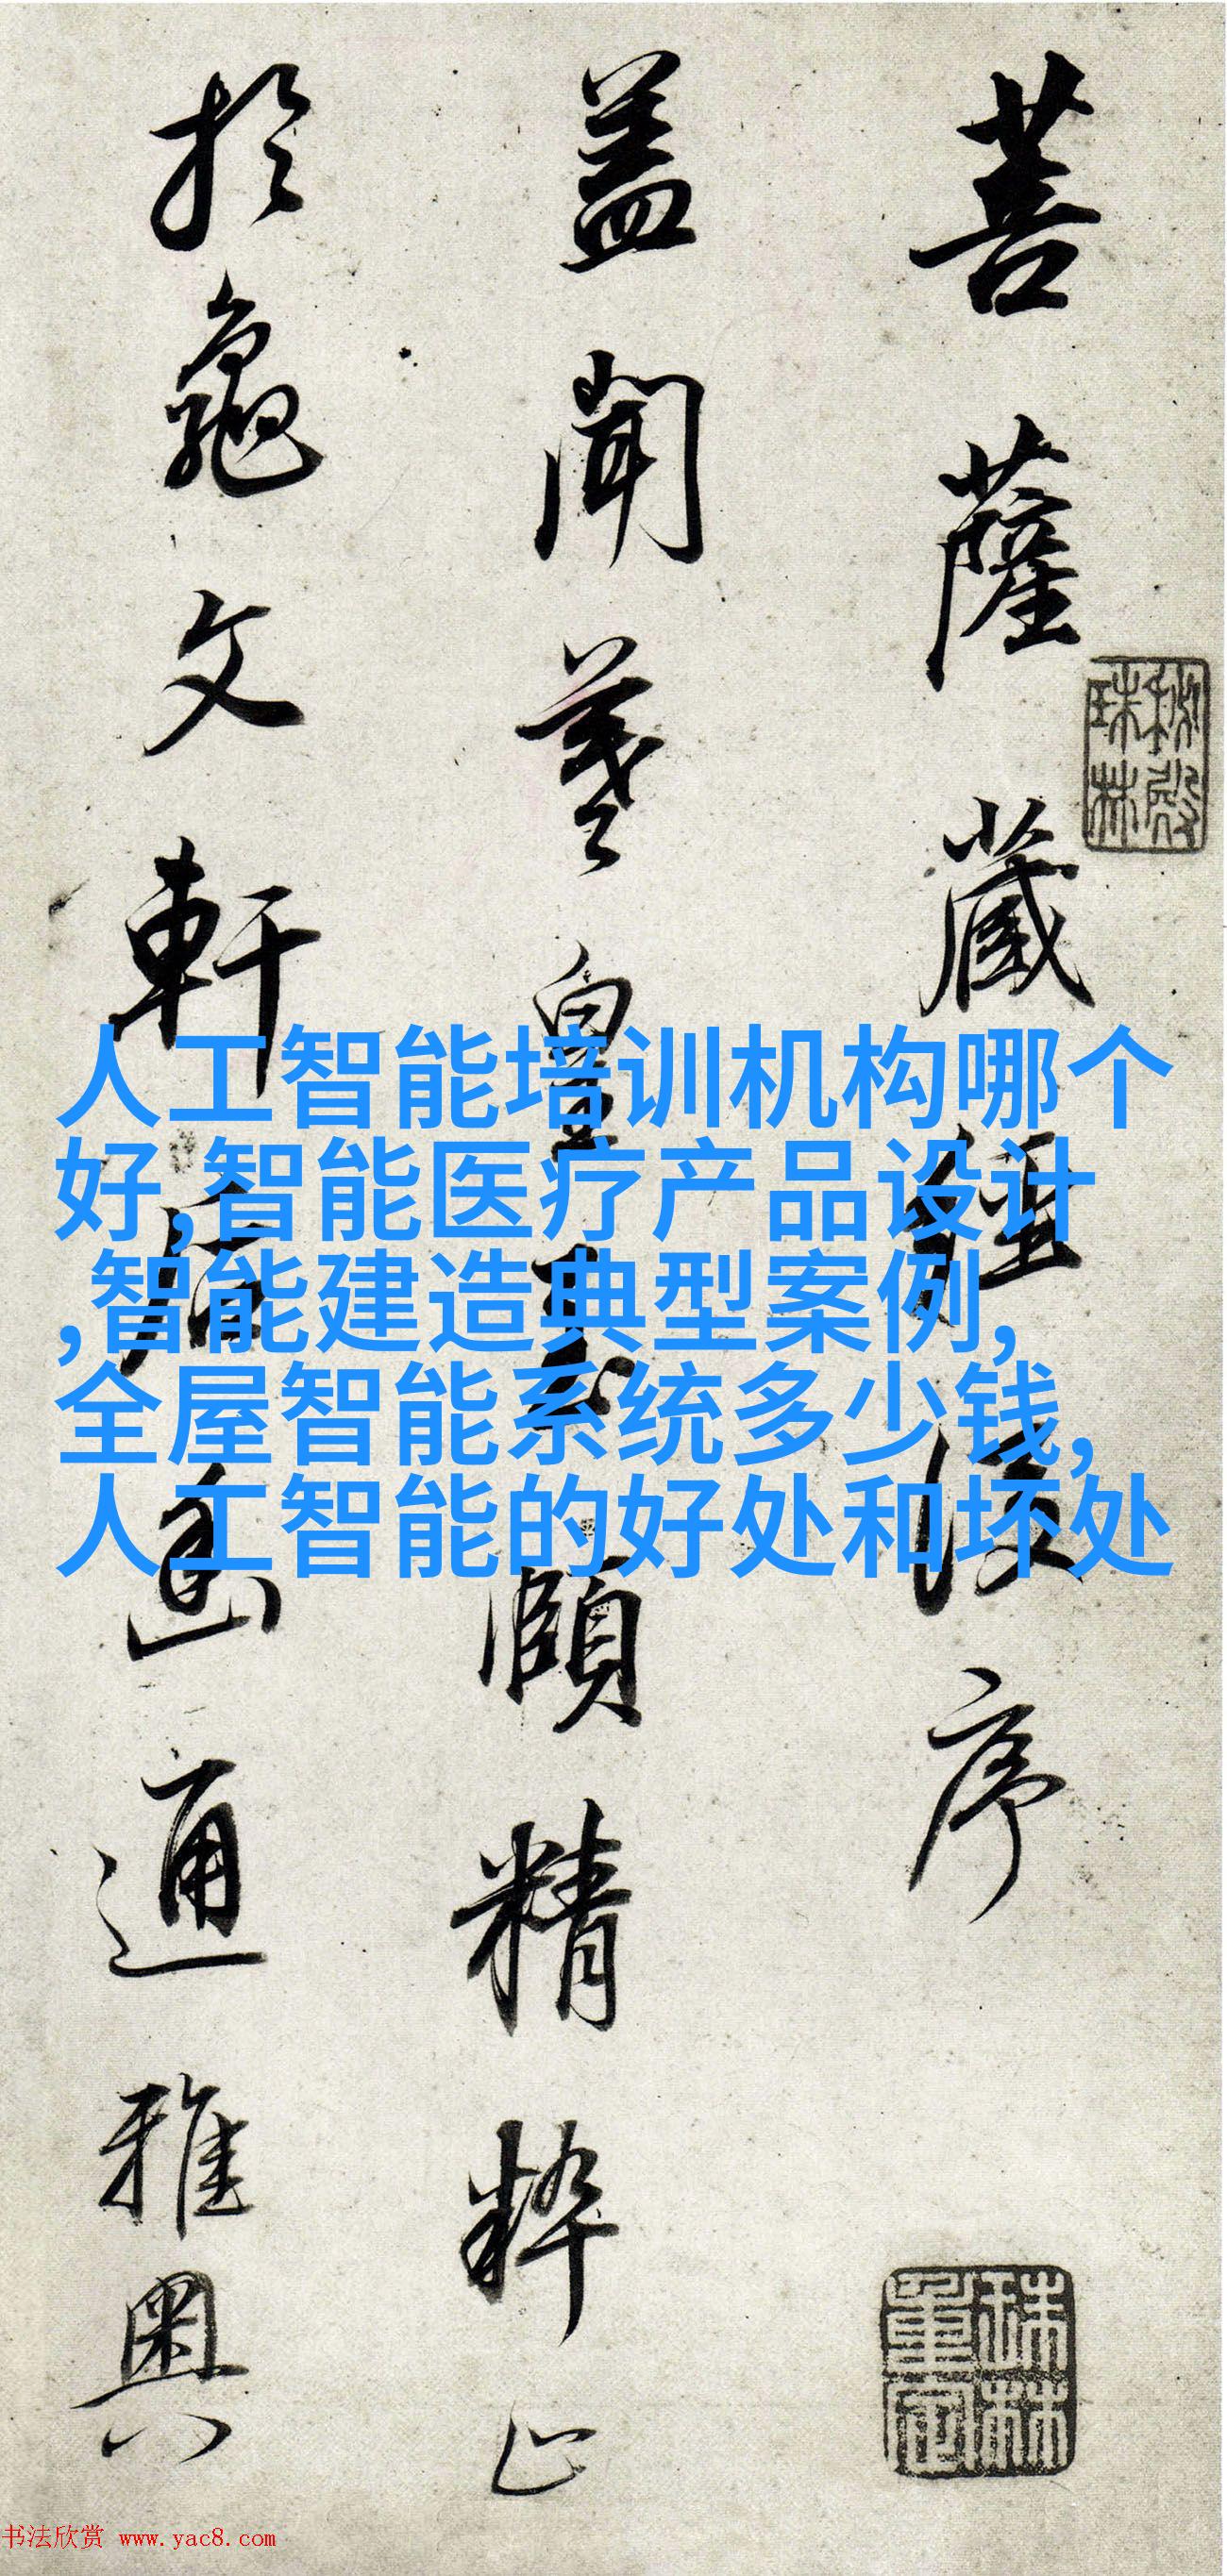 菩薩藏經後序
蓋聞羲皇至賾精粹止
於龜文軒后幽通雅奧
秘殿
珠林
珠林
重定
人工智能培训机构哪个
好,智能医疗产品设计
,智能建造典型案例,
全屋智能系统多少钱,
人工智能的好处和坏处
书法欣赏 www.yac8.com